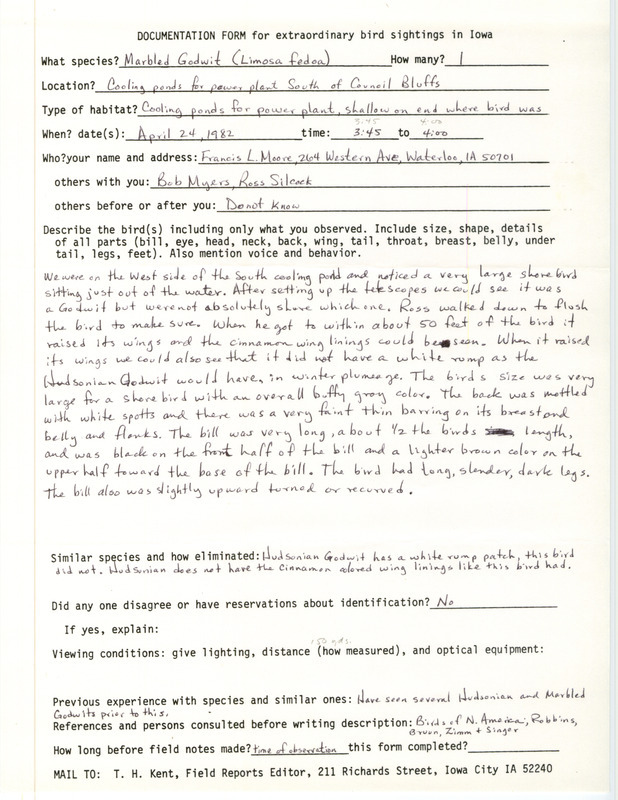 DOCUMENTATION FORM for extraordinary bird sightings in Iowa
What species? Marbled Godwit (Limosa fedoa) How many? 1
Location? Cooling ponds for power plant South of Council Bluffs
Type of habitat? Cooling ponds for power plant, shallow on end where bird was
3:45 4:00
When? date(s): April 24, 1982 time: 3:45 to 4:00
Who?your name and address: Francis L. Moore, 2164 Western Ave, Waterloo, IA 50701
others with you: Bob Myers, Ross Silcock
others before or after you: Do not know
Describe the bird(s) including only what you observed. Include size, shape, details
of all parts (bill, eye, head, neck, back, wing, tail, throat, breast, belly, under
tail, legs, feet). Also mention voice and behavior.
We were on the West side of the South cooling pond and noticed a very large shorebird
sitting just out of the water. After setting up the telescopes we could see it was
a Godwit but were not absolutely shore which one. Ross walked down to flush
the bird to make sure. When he got to within about 50 feet of the bird it
raised its wings and the cinnamon wing linings could be seen. When it raised
its wings we could also see that it did not have a white rump as the
Hudsonian Godwit would have, in winter plumeage. The birds size was very
large for a shore bird with an overall buffy gray color. The back was mottled
with white spots and there was a very faint thin barring on its breast and
belly and flanks. The bill was very long, about 1/2 the birds length,
and was black on the front half of the bill and a lighter brown color on the
upper half toward the base of the bill. The bird had long, slender, dark legs.
The bill also was slightly upward turned or recurved.
Similar species and how eliminated: Hudsonian Godwit has a white rump patch, this bird
did not. Hudsonian does not have the cinnamon colored wing linings like this bird had.
Did any one disagree or have reservations about identification? No
If yes, explain:
150 yds.
Viewing conditions: give lighting, distance (how measured), and optical equipment:
Previous experience with species and similar ones: Have seen several Hudsonian and Marbled
Godwits prior to this.
References and persons consulted before writing description: Birds of N. America, Robbins,
Bruun, Zimm + Singer
How long before field notes made? time of observation this form completed?
MAIL TO: T. H. Kent, Field Reports Editor, 211 Richards Street, Iowa City IA 52240